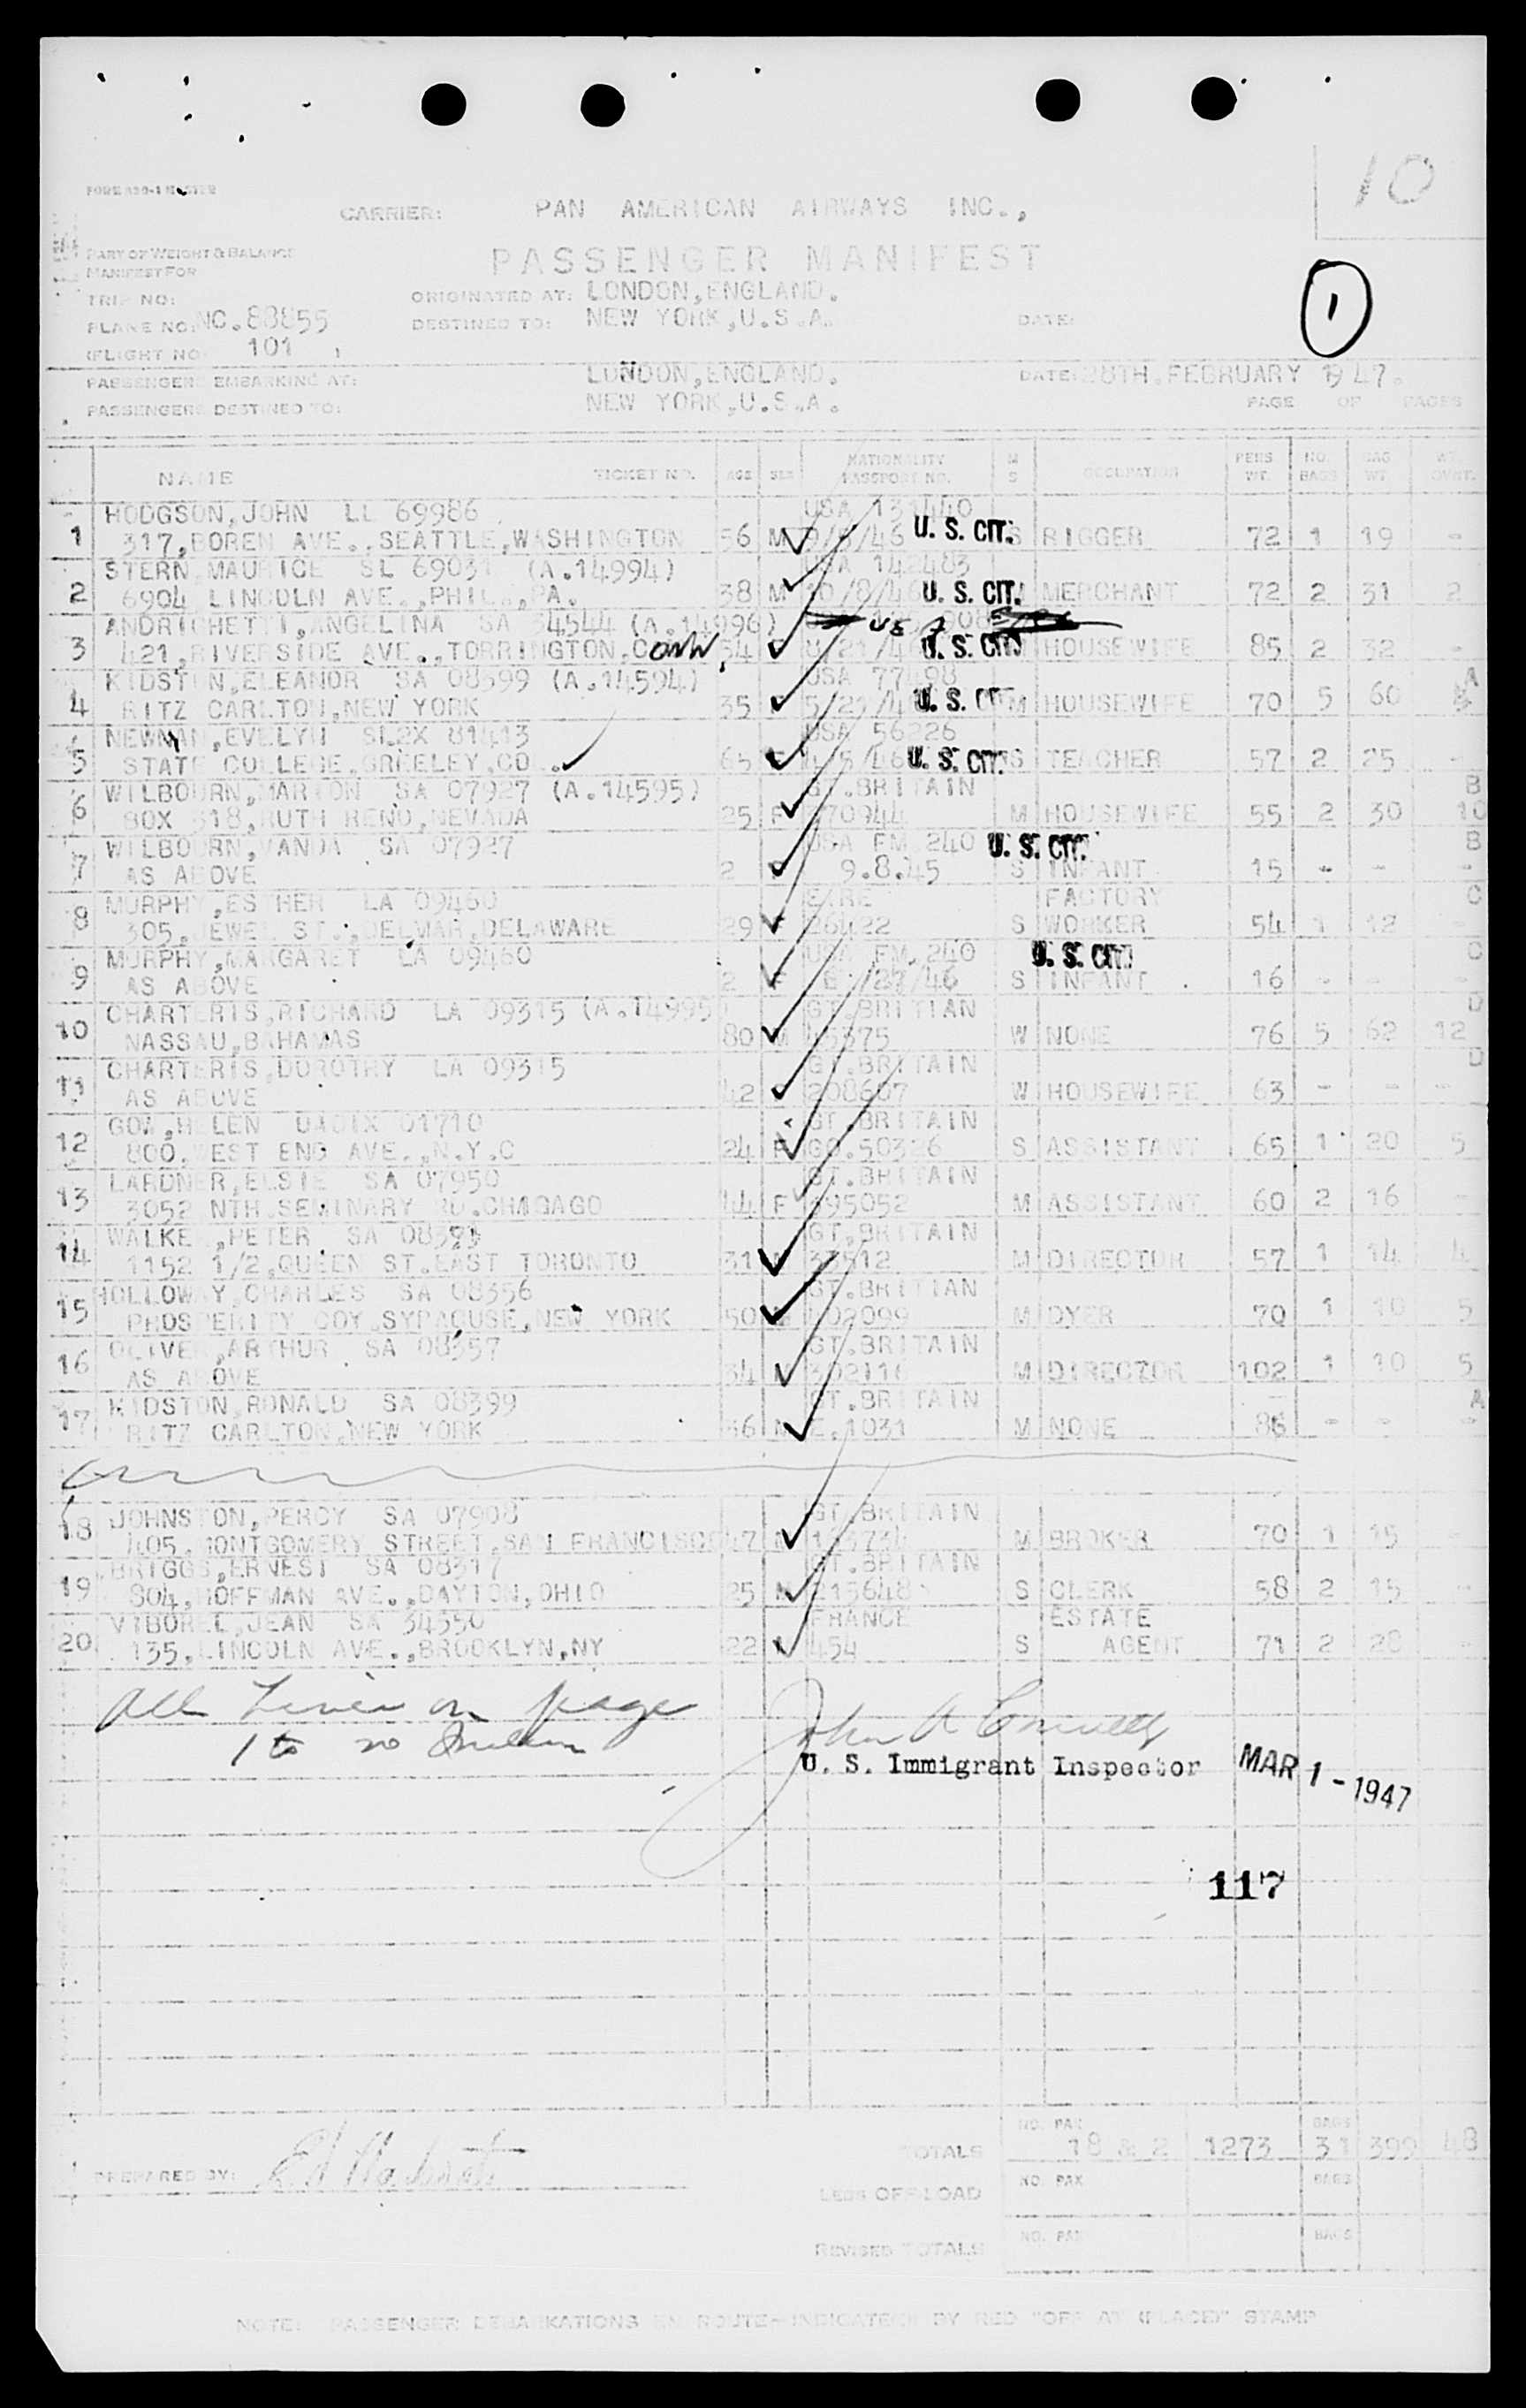 10
FORM 430-1 MASTER
CARRIER: PAN AMERICAN AIRWAYS INC.,
PART OF WEIGHT & BALANCE
MANIFEST FOR
PASSENGER MANIFEST
TRIP NO:
ORIGINATED AT: LONDON,ENGLAND.
1
PLANE NO: NC.88855
DESTINED TO: NEW YORK,U.S.A.
DATE:
(FLIGHT NO 101 )
PASSENGERS EMBARKING AT: LONDON,ENGLAND. DATE: 28TH.FEBRUARY 1947.
PASSENGERS DESTINED TO: NEW YORK,U.S.A.
PAGE OF PAGES
NAME TICKET NO. AGE SEX NATIONALITY PASSPORT NO. M S OCCUPATION PERS WT. NO. BAGS BAG WT
HODGSON,JOHN LL 69986 USA 131440
1 317,BOREN AVE.,SEATTLE,WASHINGTON 56 M 9/5/46 U. S. CIT. S RIGGER 72 1 19 -
STERN MAURICE SL 69031 (A.14994) USA 142483
2 6904 LINCOLN AVE.,PHILA,PA. 38 M 10/8/46 U. S. CIT. MERCHANT 72 2 31 2
ANDRICHETTI,ANGELINA SA 34544 (A.14996)
3 421,RIVERSIDE AVE.,TORRINGTON,Conn. 54 U. S. CIT. HOUSEWIFE 85 2 32 -
KIDSTON,ELEANOR SA 08399 (A.14594) USA 77498 A
4 RITZ CARLTON,NEW YORK 35 F 5/21/4 U. S. CIT M HOUSEWIFE 70 5 60
NEWMAN,EVELYN SL2X 81413 USA 56226
5 STATE COLLEGE,GREELEY,CO. 65 F 4/5/46 U. S. CIT. S TEACHER 57 2 25 -
WILBOURN,MARION SA 07927 (A.14595) GT.BRITAIN B
6 BOX 318,RUTH RENO,NEVADA 25 F 270944 M HOUSEWIFE 55 2 30 10
WILBOURN,VANDA SA 07927 USA FM.240 U. S. CIT. B
7 AS ABOVE 2 F 9.8.45 S INFANT 15 - - -
MURPHY,ESTHER LA 09460 EIRE FACTORY C
8 305,JEWEL ST.,DELMAR,DELAWARE 29 F 26422 S WORKER 54 1 12 -
MURPHY,MARGARET LA 09460 USA FM.240 U. S. CIT. C
9 AS ABOVE 2 F /27/46 S INFANT 16 - - -
CHARTERIS,RICHARD LA 09315 (A.14995) GT.BRITIAN D
10 NASSAU,BAHAMAS 80 M 45375 W NONE 76 5 62 12
CHARTERIS,DOROTHY LA 09315 GT.BRITAIN D
11 AS ABOVE 42 F 208607 W HOUSEWIFE 63 - - -
GOW,HELEN 01710 GT.BRITAIN
12 800.WEST END AVE.,N.Y.C 24 F GO.50326 S ASSISTANT 65 1 20 5
LARDNER,ELSIE SA 07950 GT.BRITAIN
13 3052 NTH.SEMINARY RD.CHAGAGO 44 F 695052 M ASSISTANT 60 2 16 -
WALKER,PETER SA 08393 GT.BRITAIN
14 1152 1/2,QUEEN ST.EAST TORONTO 31 M 37512 M DIRECTOR 57 1 14 4
HOLLOWAY,CHARLES SA 08356 GT.BRITIAN
15 PROSPERITY COY.SYRACUSE,NEW YORK 50 M 502099 M DYER 70 1 10 5
OLIVER,ARTHUR SA 08357 GT.BRITAIN
16 AS ABOVE 34 M 302116 M DIRECTOR 102 1 10 5
KIDSTON,RONALD SA 08399 GT.BRITAIN A
17 RITZ CARLTON,NEW YORK 36 M E.1031 M NONE 86 - - -
JOHNSTON,PERCY SA 07908 GT.BRITAIN
18 405.MONTGOMERY STREET,SAN FRANCISCO 47 M M BROKER 70 1 15 -
BRIGGS,ERNEST SA 08317 GT.BRITAIN
19 804,HOFFMAN AVE.,DAYTON,OHIO 25 M 215648 S CLERK 58 2 15 -
VIBOREL,JEAN SA 34350 FRANCE ESTATE
20 135,LINCOLN AVE.,BROOKLYN,NY 22 M 454 S AGENT 71 2 28 -
All Lines on page
1 to 20
U. S. Immigrant Inspector MAR 1 - 1947
117
PREPARED BY:
TOTALS NO. PAX 18 & 2 1273 BAGS 31 399 48
LESS OFF-LOAD NO. PAX BAGS
REVISED TOTALS NO. PAX BAGS
NOTE: PASSENGER DEBARKATIONS EN ROUTE-INDICATED BY RED "OFF AT (PLACE)" STAMP